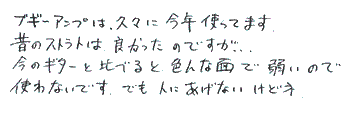 ブギーアンプは、久々に今年使ってます
昔のストラトは良かったのですが、、
今のギターと比べると色んな面で弱いので
使わないです。でも人にあげないけどネ